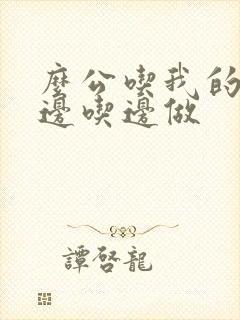 麼公喫我的
邊喫邊做
譚啓龍